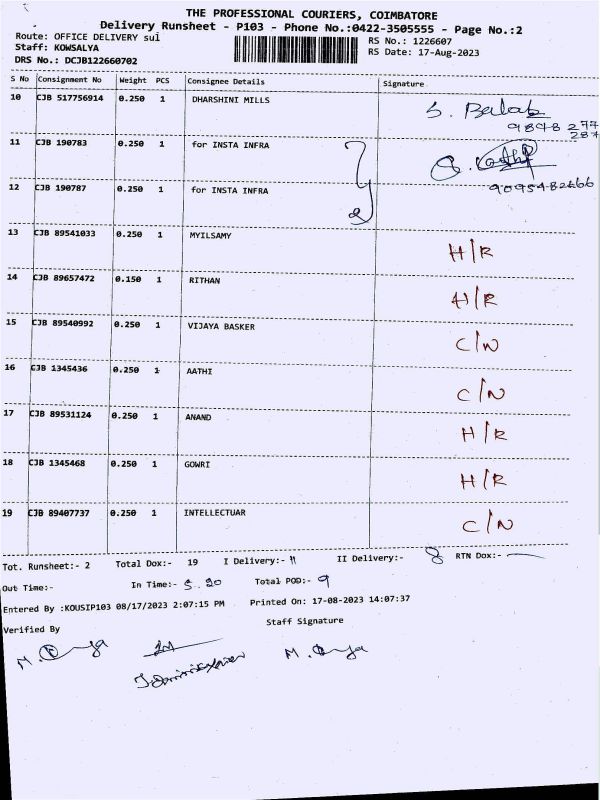 THE PROFESSIONAL COURIERS, COIMBATORE
Delivery Runsheet - P103 - Phone No.:0422-3505555 - Page No.:2
Route: OFFICE DELIVERY sul
RS No.: 1226607
Staff: KOWSALYA
RS Date: 17-Aug-2023
DRS No.: DCJB122660702
S No Consignment No Weight PCS Consignee Details Signature
10 CJB 517756914 0.250 1 DHARSHINI MILLS S. Balab
11 CJB 190783 0.250 1 for INSTA INFRA
12 CJB 190787 0.250 1 for INSTA INFRA 9095482666
13 CJB 89541033 0.250 1 MYILSAMY H/R
14 CJB 89657472 0.150 1 RITHAN H/R
15 CJB 89540992 0.250 1 VIJAYA BASKER C/N
16 CJB 1345436 0.250 1 AATHI C/N
17 CJB 89531124 0.250 1 ANAND H/R
18 CJB 1345468 0.250 1 GOWRI H/R
19 CJB 89407737 0.250 1 INTELLECTUAR C/N
Tot. Runsheet:- 2 Total Dox:- 19 I Delivery:- 11 II Delivery:- 8 RTN Dox:- —
Out Time:- In Time:- 5.20 Total POD:- 9
Entered By :KOUSIP103 08/17/2023 2:07:15 PM Printed On: 17-08-2023 14:07:37
Verified By Staff Signature